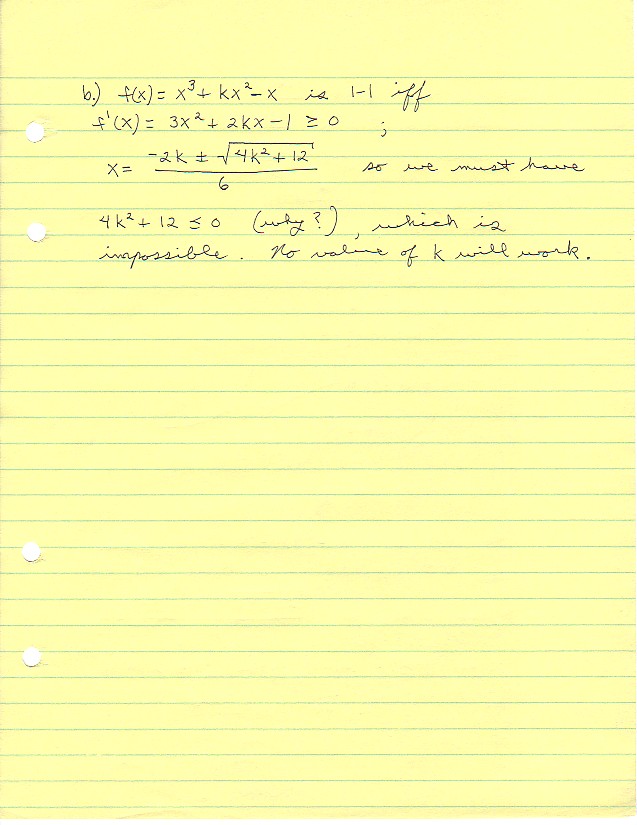 b.) f(x) = x³ + kx² - x is 1-1 iff
f'(x) = 3x² + 2kx - 1 ≥ 0 ;
x = (-2k ± √(4k² + 12)) / 6 so we must have
4k² + 12 ≤ 0 (why?), which is
impossible. No value of k will work.